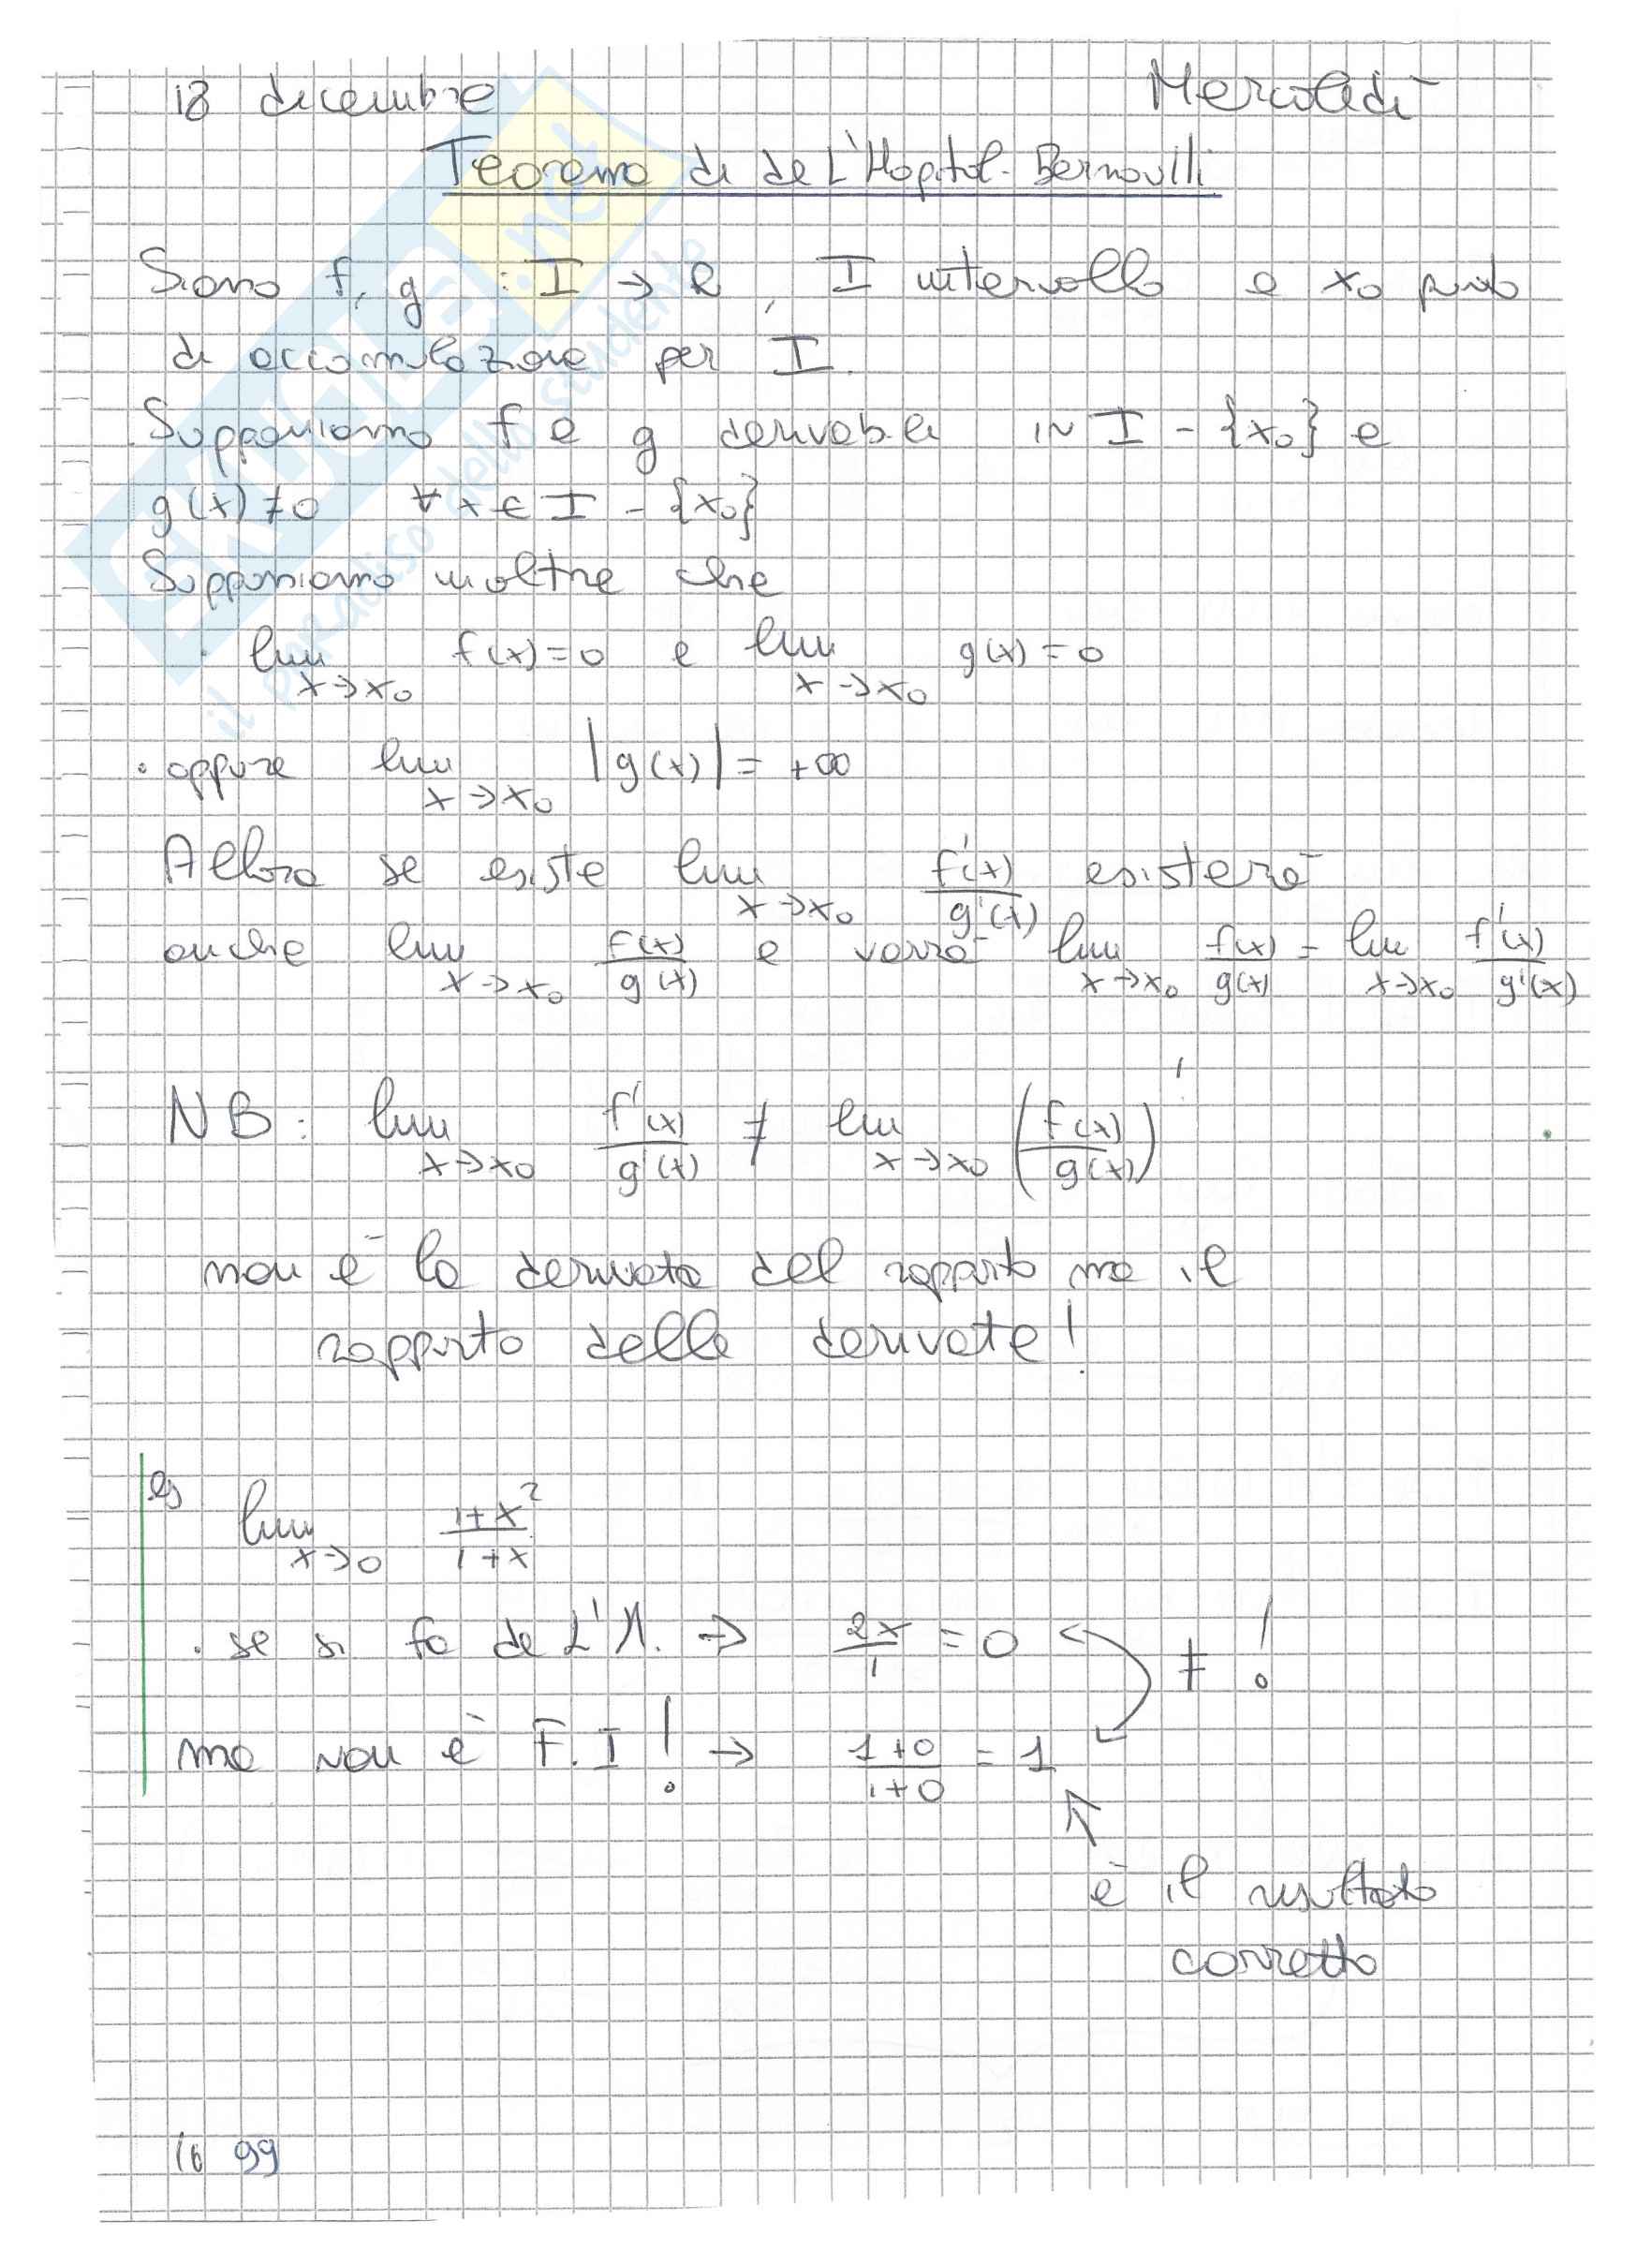 18 dicembre Mercoledì
Teorema di de L'Hopital-Bernoulli
Siano f, g : I → R, I intervallo e x₀ punto
di accomulazione per I.
Supponiamo f e g derivabili in I - {x₀} e
g(x) ≠ 0 ∀ x ∈ I - {x₀}
Supponiamo inoltre che
· lim x→x₀ f(x) = 0 e lim x→x₀ g(x) = 0
· oppure lim x→x₀ |g(x)| = +∞
Allora se esiste lim x→x₀ f'(x)/g'(x) esisterà
anche lim x→x₀ f(x)/g(x) e varrà lim x→x₀ f(x)/g(x) = lim x→x₀ f'(x)/g'(x)
NB: lim x→x₀ f'(x)/g'(x) ≠ lim x→x₀ (f(x)/g(x))'
non è la derivata del rapporto ma il
rapporto delle derivate!
es
lim x→0 1+x²/1+x
· se si fa de L'H. → 2x/1 = 0 ≠ !
ma non è F.I! → 1+0/1+0 = 1
è il risultato
corretto
99
SKUOLA.net
il paradiso dello studente